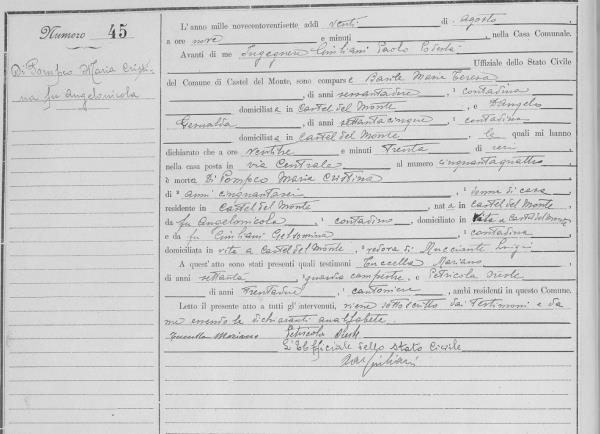 Numero 45
Di Pompeo Maria Cristi-
na fu Angelonicola
L'anno millenovecentoventisette addì venti di Agosto,
a ore nove e minuti, nella Casa Comunale.
Avanti di me Ingegnere Giuliani Paolo Podestà
Ufficiale dello Stato Civile
del Comune di Castel del Monte, sono comparse Maria Teresa
, di anni sessantadue, contadina
domiciliata in Castel del Monte, e D'Angelo
, di anni settantacinque, contadina
domiciliata in Castel del Monte, le quali mi hanno
dichiarato che a ore ventitre e minuti trenta di ieri
nella casa posta in via Centrale al numero cinquantaquattro
è morta Di Pompeo Maria Cristina
di anni cinquantasei, donna di casa
residente in Castel del Monte nata in Castel del Monte
da fu Angelonicola, contadino, domiciliato in vita a Castel del Monte
e da fu Giuliani Gelsomina, contadina
domiciliata in vita a Castel del Monte, vedova di Mucciante Luigi
A quest'atto sono stati presenti quali testimoni Mariano
di anni settanta, guardia campestre, e Petricola Oreste
di anni trentadue, cantoniere, ambi residenti in questo Comune.
Letto il presente atto a tutti gl'intervenuti, viene sottoscritto dai testimoni e da
me essendo le dichiaranti analfabete.
Mariano Petricola
L'Ufficiale dello Stato Civile
Giuliani